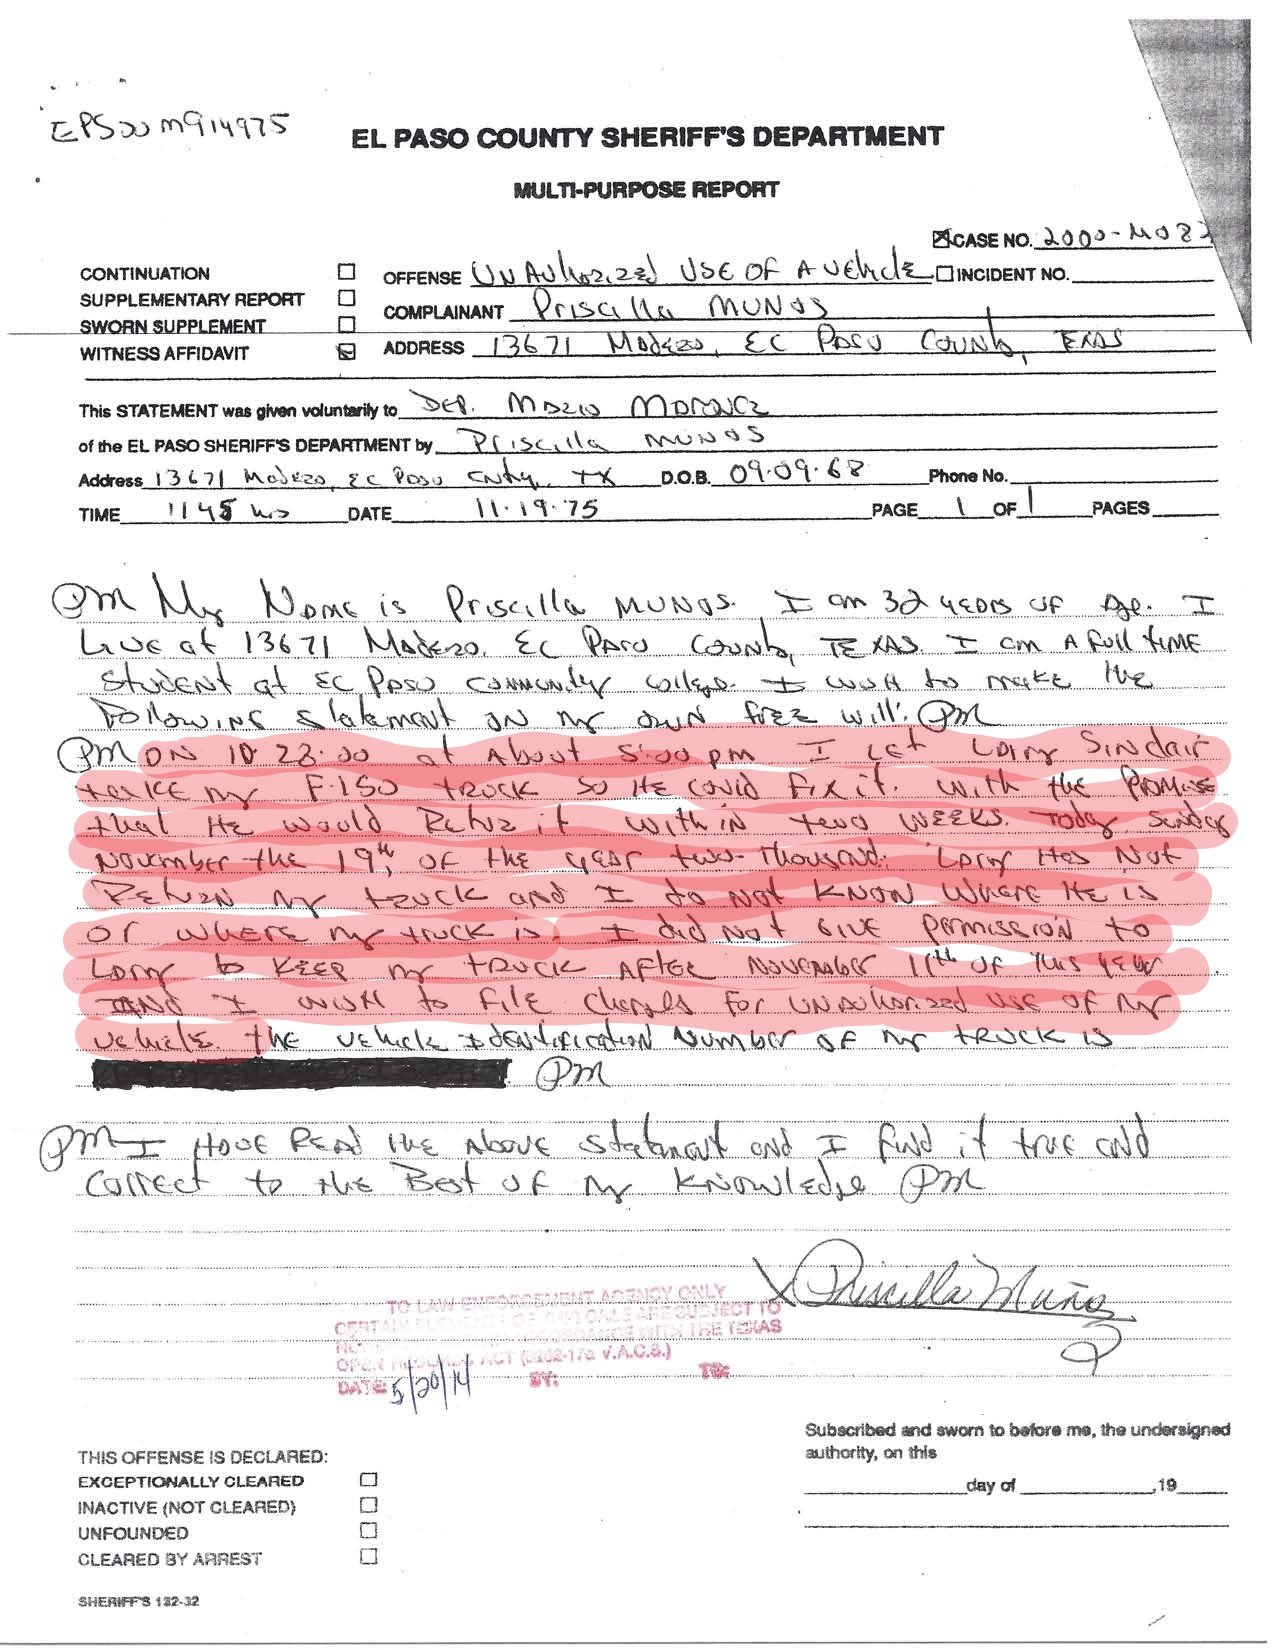 EPSOO M914975
EL PASO COUNTY SHERIFF'S DEPARTMENT
MULTI-PURPOSE REPORT
CASE NO. 2000-M082
CONTINUATION
OFFENSE UNAuthorized USE OF A Vehicle INCIDENT NO.
SUPPLEMENTARY REPORT
COMPLAINANT Priscilla MUNOS
SWORN SUPPLEMENT
WITNESS AFFIDAVIT
ADDRESS 13671 Madero, EL PASO County, TEXAS
This STATEMENT was given voluntarily to DEP. Mario
of the EL PASO SHERIFF'S DEPARTMENT by Priscilla MUNOS
Address 13671 Madero, EL PASO Cnty, TX D.O.B. 09-09-68 Phone No.
TIME 1145 hrs DATE 11-19-75 PAGE 1 OF 1 PAGES
PM My Name is Priscilla MUNOS. I am 32 years of Age. I
Live at 13671 Madero, EL PASO County, TEXAS. I am A full time
student at EL PASO community college. I wish to make the
Following statement on my own free will. PM
PM ON 10-28-00 at About 5:00 pm I Let Larry Sinclair
take my F-150 truck so HE could Fix it. With the Promise
that He would Return it within two WEEKS. Today, Sunday
November the 19th, of the year two-Thousand. Larry Has Not
Return my truck and I do not KNOW Where He is
or where my truck is. I did Not GIVE permission to
Larry to KEEP my truck AFTER NOVEMBER 11th OF this year
AND I wish to File Charges for UNAuthorized USE of my
vehicle. The vehicle Identification Number of my truck is
PM
PM I Have Read the Above statement and I find it true and
correct to the Best of my knowledge PM
X Priscilla Muños
TO LAW ENFORCEMENT AGENCY ONLY
CERTAIN ELEMENTS OF THIS CASE ARE SUBJECT TO
ACCORDANCE WITH THE TEXAS
OPEN RECORDS ACT (6252-17a V.A.C.S.)
DATE: 5/20/14 BY: TO:
Subscribed and sworn to before me, the undersigned
authority, on this
day of ,19
THIS OFFENSE IS DECLARED:
EXCEPTIONALLY CLEARED
INACTIVE (NOT CLEARED)
UNFOUNDED
CLEARED BY ARREST
SHERIFF'S 132-32